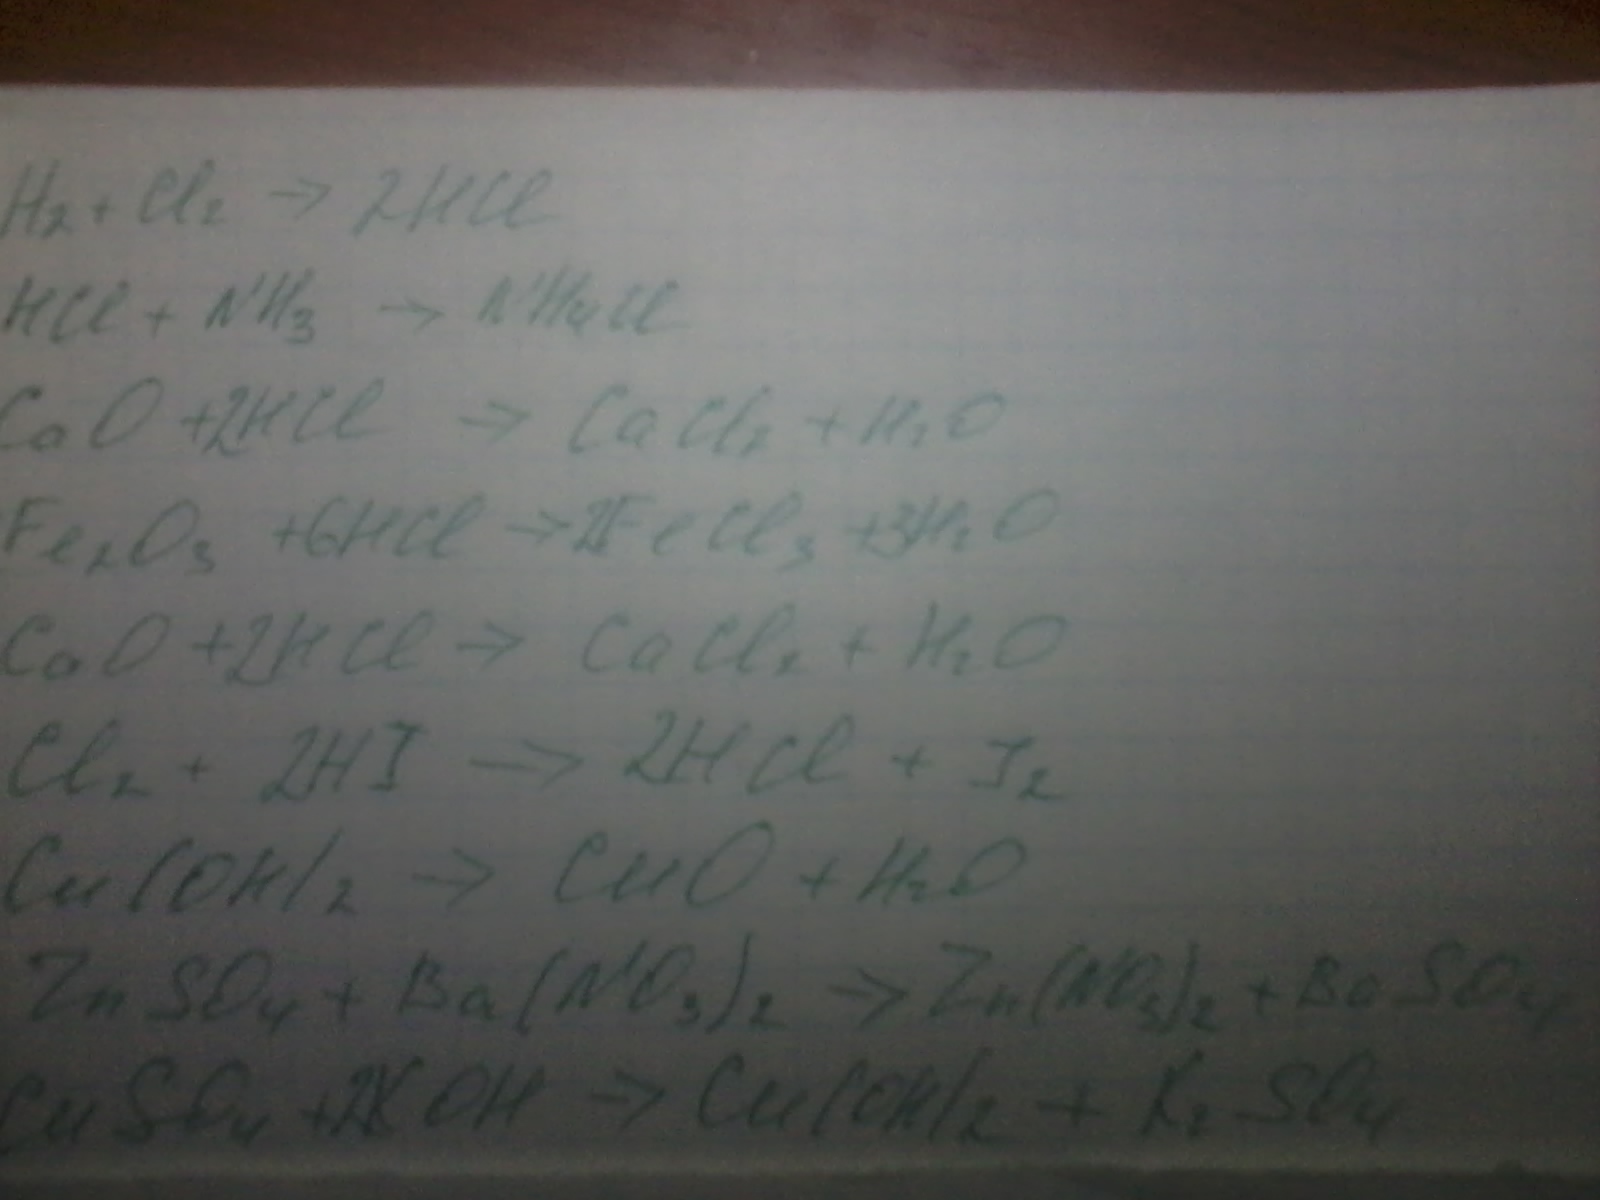 H₂ + Cl₂ → 2HCl
HCl + NH₃ → NH₄Cl
CaO + 2HCl → CaCl₂ + H₂O
Fe₂O₃ + 6HCl → 2FeCl₃ + 3H₂O
CaO + 2HCl → CaCl₂ + H₂O
Cl₂ + 2HI → 2HCl + I₂
Cu(OH)₂ → CuO + H₂O
ZnSO₄ + Ba(NO₃)₂ → Zn(NO₃)₂ + BaSO₄
CuSO₄ + 2KOH → Cu(OH)₂ + K₂SO₄